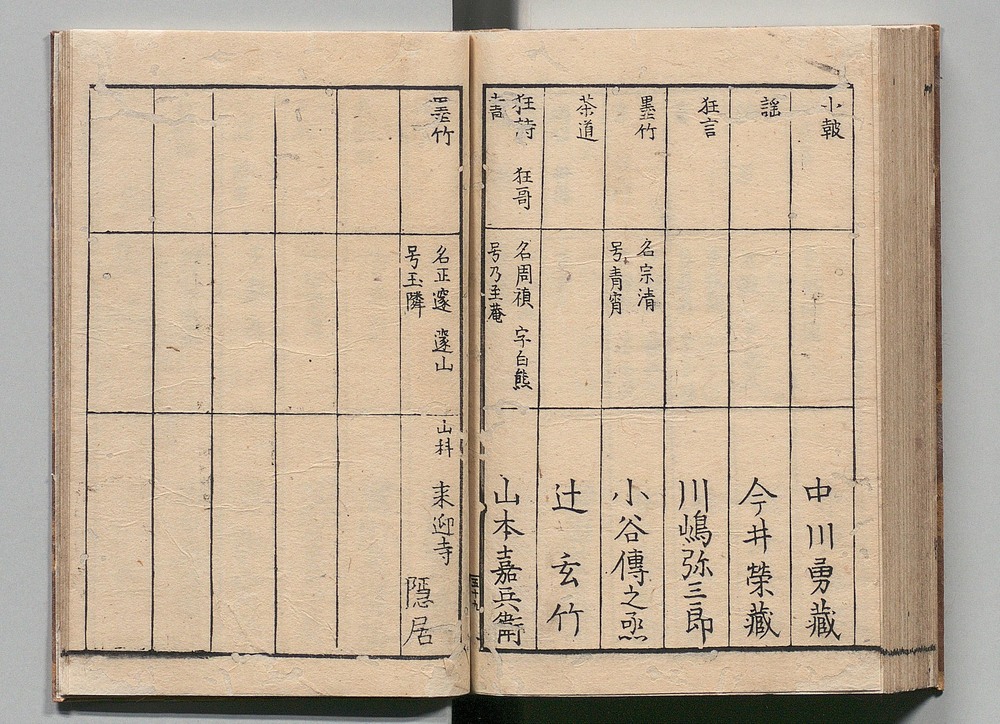 小皷
中川勇藏
謡
今井榮藏
狂言
川嶋弥三郎
墨竹
名宗清
号青霄
小谷傳之丞
茶道
辻玄竹
狂詩 狂哥
書
名周禎 字白熊
号乃至菴
山本嘉兵衛
五十九
墨竹
名正邃 邃山
号玉隣
山科 来迎寺
隠居